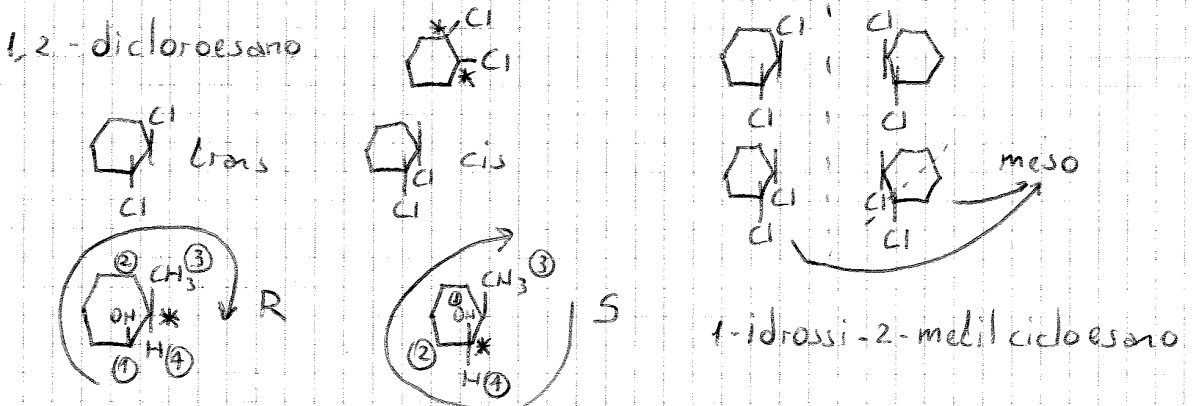 1,2-dicloroesano
Cl
*
Cl
*
Cl
Cl
Cl
Cl
Cl
trans
Cl
cis
Cl
Cl
Cl
Cl
Cl
Cl
Cl
meso
② CH₃ ③
OH * R
① H ④
CH₃ ③
① OH S
② *
H ④
1-idrossi-2-metilcicloesano